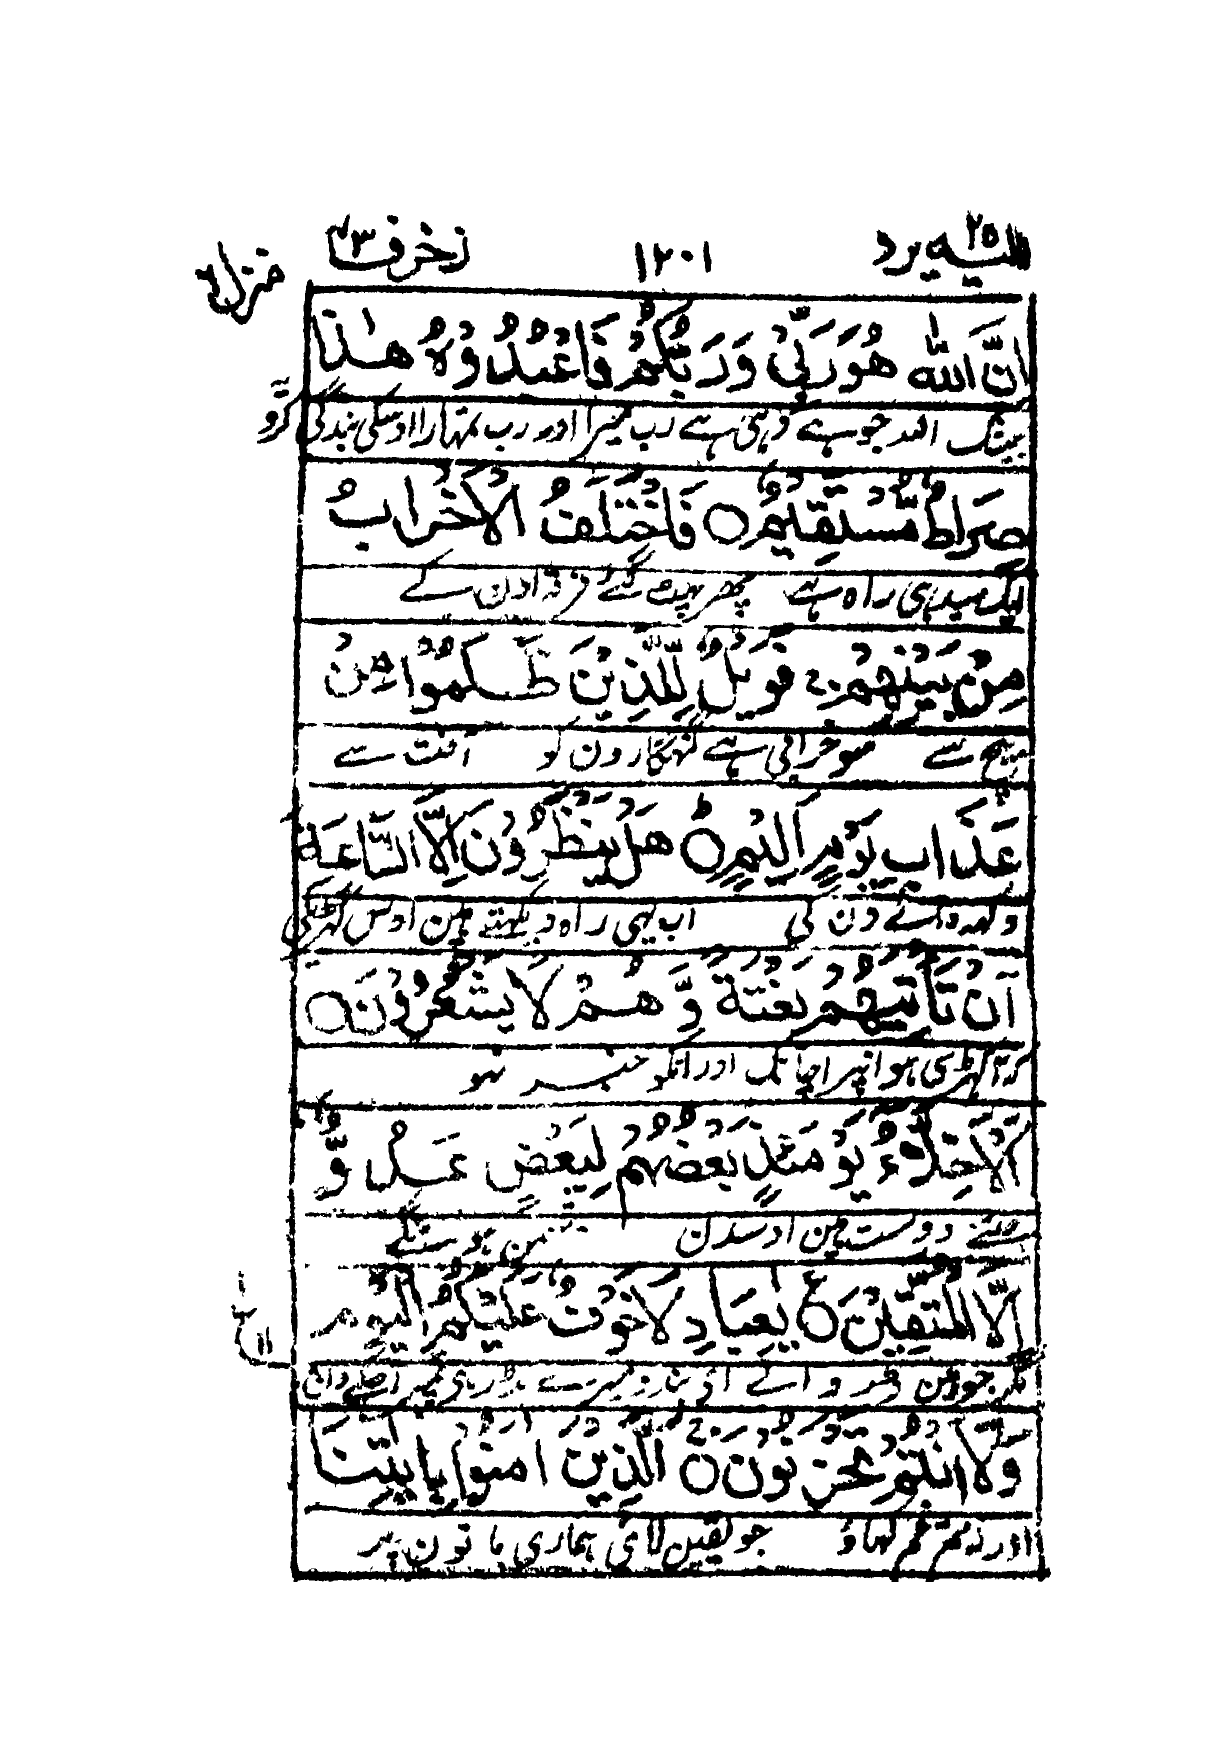 الیه یرد ۲۵ ۱۲۰۱ زخرف ۴۳
منزل ۶
اِنَّ اللّٰهَ هُوَ رَبِّیْ وَ رَبُّكُمْ فَاعْبُدُوْهُ هٰذَا
بیشک اللہ جو ہے وہی ہے رب میرا اور رب تمہارا اوسکی بندگی کرو
صِرَاطٌ مُّسْتَقِیْمٌ ○ فَاخْتَلَفَ الْاَحْزَابُ
ایک سیدہی راہ ہے پھر پھٹ گئے فرقے اون کے
مِنْۢ بَیْنِهِمْ ج فَوَیْلٌ لِّلَّذِیْنَ ظَلَمُوْا مِنْ
بیچ سے سو خرابی ہے گنہگارون کو آفت سے
عَذَابِ یَوْمٍ اَلِیْمٍ ○ هَلْ یَنْظُرُوْنَ اِلَّا السَّاعَةَ
دکہہ والے دن کی اب یہی راہ دیکہتے ہین اوس گہڑی کی
اَنْ تَاْتِیَهُمْ بَغْتَةً وَّ هُمْ لَا یَشْعُرُوْنَ ○
کہ آ کہڑی ہو اونپر اچانک اور انکو خبر نہو
اَلْاَخِلَّآءُ یَوْمَئِذٍۭ بَعْضُهُمْ لِبَعْضٍ عَدُوٌّ
جتنے دوست ہین اوسدن دشمن ہونگے
اِلَّا الْمُتَّقِیْنَ ○ ع یٰعِبَادِ لَا خَوْفٌ عَلَیْكُمُ الْیَوْمَ
مگر جو ہین ڈر والے ای بندو میرے نہ ڈر ہی تمپر آجکے دن
وَ لَاۤ اَنْتُمْ تَحْزَنُوْنَ ○ اَلَّذِیْنَ اٰمَنُوْا بِاٰیٰتِنَا
اور نہ تم غم کہاؤ جو یقین لائی ہماری باتون پر